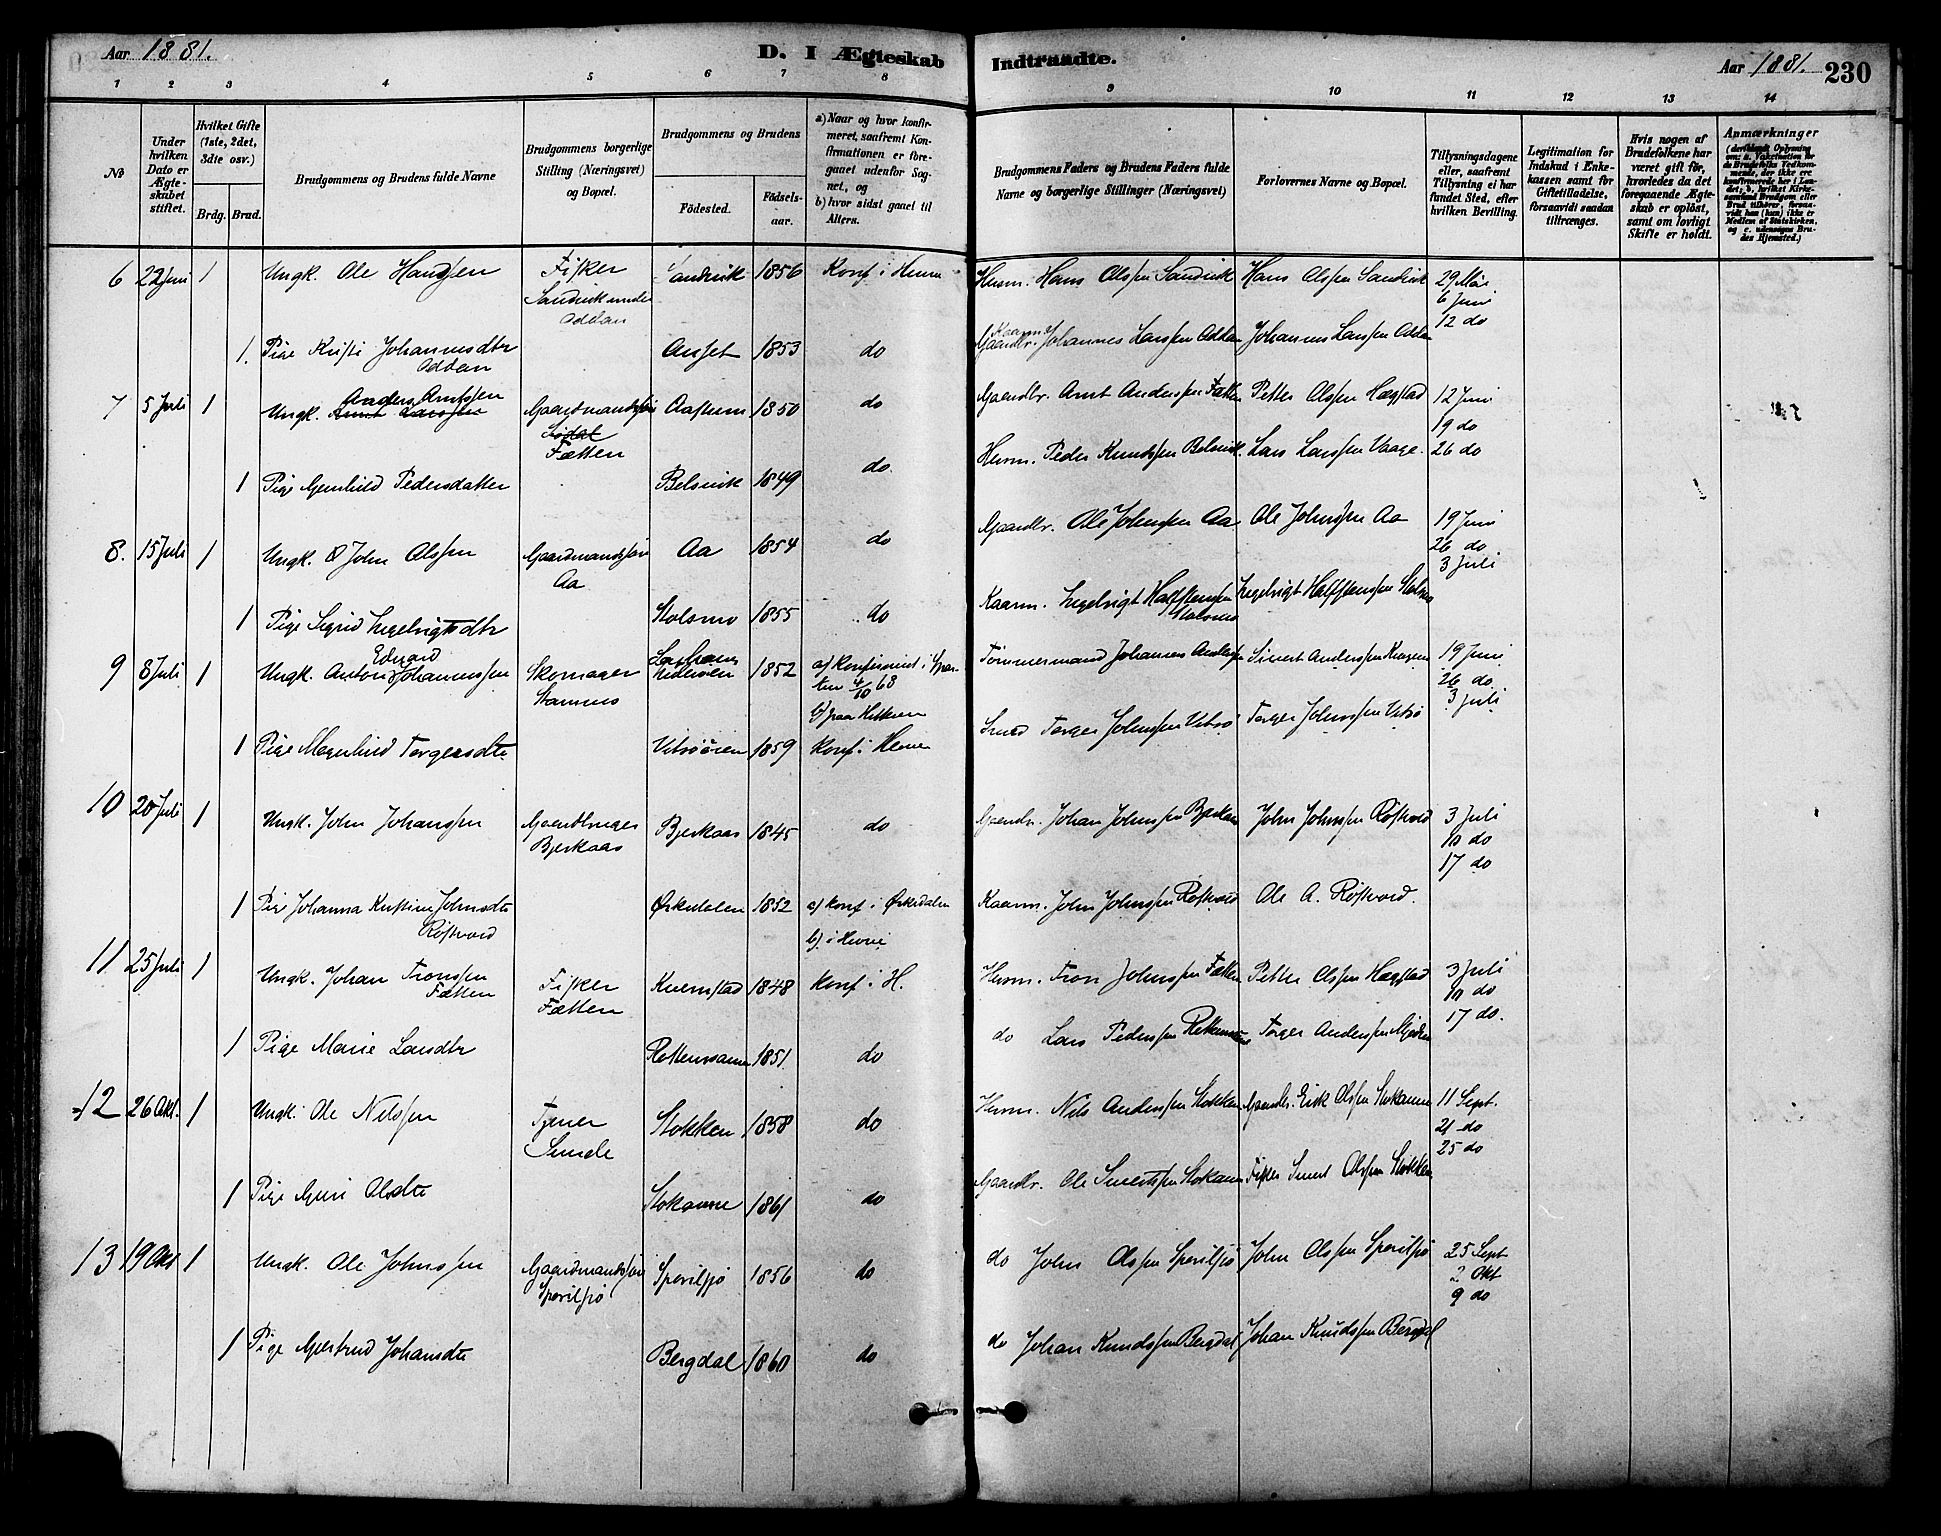 Aar 1881.
D. I Ægteskab Indtraadte.
Aar 1881. 230
1 2 3 4 5 6 7 8 9 10 11 12 13 14
No
Under hvilken Dato er Ægteskabet stiftet.
Hvilket Gifte (1ste, 2det, 3die osv.)
Brdg. Brud.
Brudgommens og Brudens fulde Navne
Brudgommens borgerlige Stilling (Næringsvei) og Bopæl.
Brudgommens og Brudens
Födested.
Födselsaar.
a) Naar og hvor konfirmeret, saafremt Konfirmationen er foregaaet udenfor Sognet, og
b) hvor sidst gaaet til Alters.
Brudgommens Faders og Brudens Faders fulde Navne og borgerlige Stillinger (Næringsvei)
Forlovernes Navne og Bopæl.
Tillysningsdagene eller, saafremt Tillysning ei har fundet Sted, efter hvilken Bevilling.
Legitimation for Indskud i Enkekassen samt for Giftetilladelse, forsaavidt saadan tiltrænges.
Hvis nogen af Brudefolkene har været gift för, hvorledes da det foregaaende Ægteskab er oplöst, samt om lovligt Skifte er holdt.
Anmærkninger
6 22 Juni 1 Ungk. Ole Hansen Fisker Sandvik 1856 Konf. i Hevne Husm. Hans Olssen Sandvik Hans Olssen Sandvik 29 Mai
Sandvik under 6 Juni
Oddan 12 do
1. Pige Kristi Johannesdtr Auset 1853 do Gaardbr. Johannes Larssen Oddan Johannes Larssen Oddan
Oddan
Kaarm.
7 5 Juli 1 Ungk. Anders Arntssen Gaardmandssøn Aastum 1850 do Gaardbr. Arnt Anderssen Fætten Petter Olssen Hægstad 12 Juni
19 do
Fætten Husm. Peder Knudssen Belsvik Lars Larssen Vaage. 26 do
1 Pige Gunhild Pedersdatter Belsvik 1849 do.
8. 15 Juli 1 Ungk. O John Olssen Gaardmandssøn Aa 1854 do Gaardbr. Ole Johnssen Aa Ole Johnssen Aa 19 Juni
Aa 26 do
3 Juli
1 Pige Sigrid Ingebrigtsdtr Stolsmo 1855 do Kaarm. Ingebrigt Halfstenssen Ingebrigt Halfstenssen Stolsmo
Stolsmo
9 8 Juli 1 Ungk. Anton Edvard Johannessen Skomager 1852 a) konfirmeret i Tømmermand Johannes Anderssen Sivert Anderssen 19 Juni
Stamnes 4/10 68 26 do
b) paa Hitteren 3 Juli
1 Pige Magnhild Torgersdtr Vitsøøren 1859 Konf. i Hevne Smed Torger Johnssen Vitsø Torger Johnssen Vitsø
10 20 Juli 1 Ungk. John Johanssen Gaardbruger Bjerkaas 1845 do Gaardbr. Johan Johnssen Bjerkaas John Johnssen Røstvold 3 Juli
Bjerkaas 10 do
17 do
1 Pige Johanna Kristine Johnsdtr Ørkedalen 1852 a) konf. i Ørkedalen Kaarm. John Johnssen Røstvold Ole A. Røstvold.
Røstvold b). i Hevne
11 25 Juli 1 Ungk. Johan Tronssen Fisker Kvernstad 1848 konf. i H. Husm. Tron Johnssen Fætten Petter Olssen Hægstad 3 Juli
Fætten Fætten 10 do
17 do.
1 Pige Marie Larsdtr 1851 do do Lars Pederssen Torger Anderssen
12 26 Okt. 1 Ungk. Ole Nilssen Tjener Stokken 1858 do Husm. Nils Anderssen Stokken Gaardbr. Erik Olssen Stokaune 11 Sept.
Sunde 21 do
25 do
1 Pige Guri Olsdtr Stokaune 1861 do Gaardbr. Ole Sivertssen Stokaune Fisker Sivert Olssen Stokken
13 19 Okt 1 Ungk. Ole Johnssen Gaardmandssøn Sperilsjø 1856 do do John Olssen Sperilsjø John Olssen Sperilsjø 25 Sept
Sperilsjø 2 Okt
9 do
1 Pige Gjertrud Johansdtr Bergdal 1860 do do Johan Knudssen Bergdal Johan Knudssen Bergdal